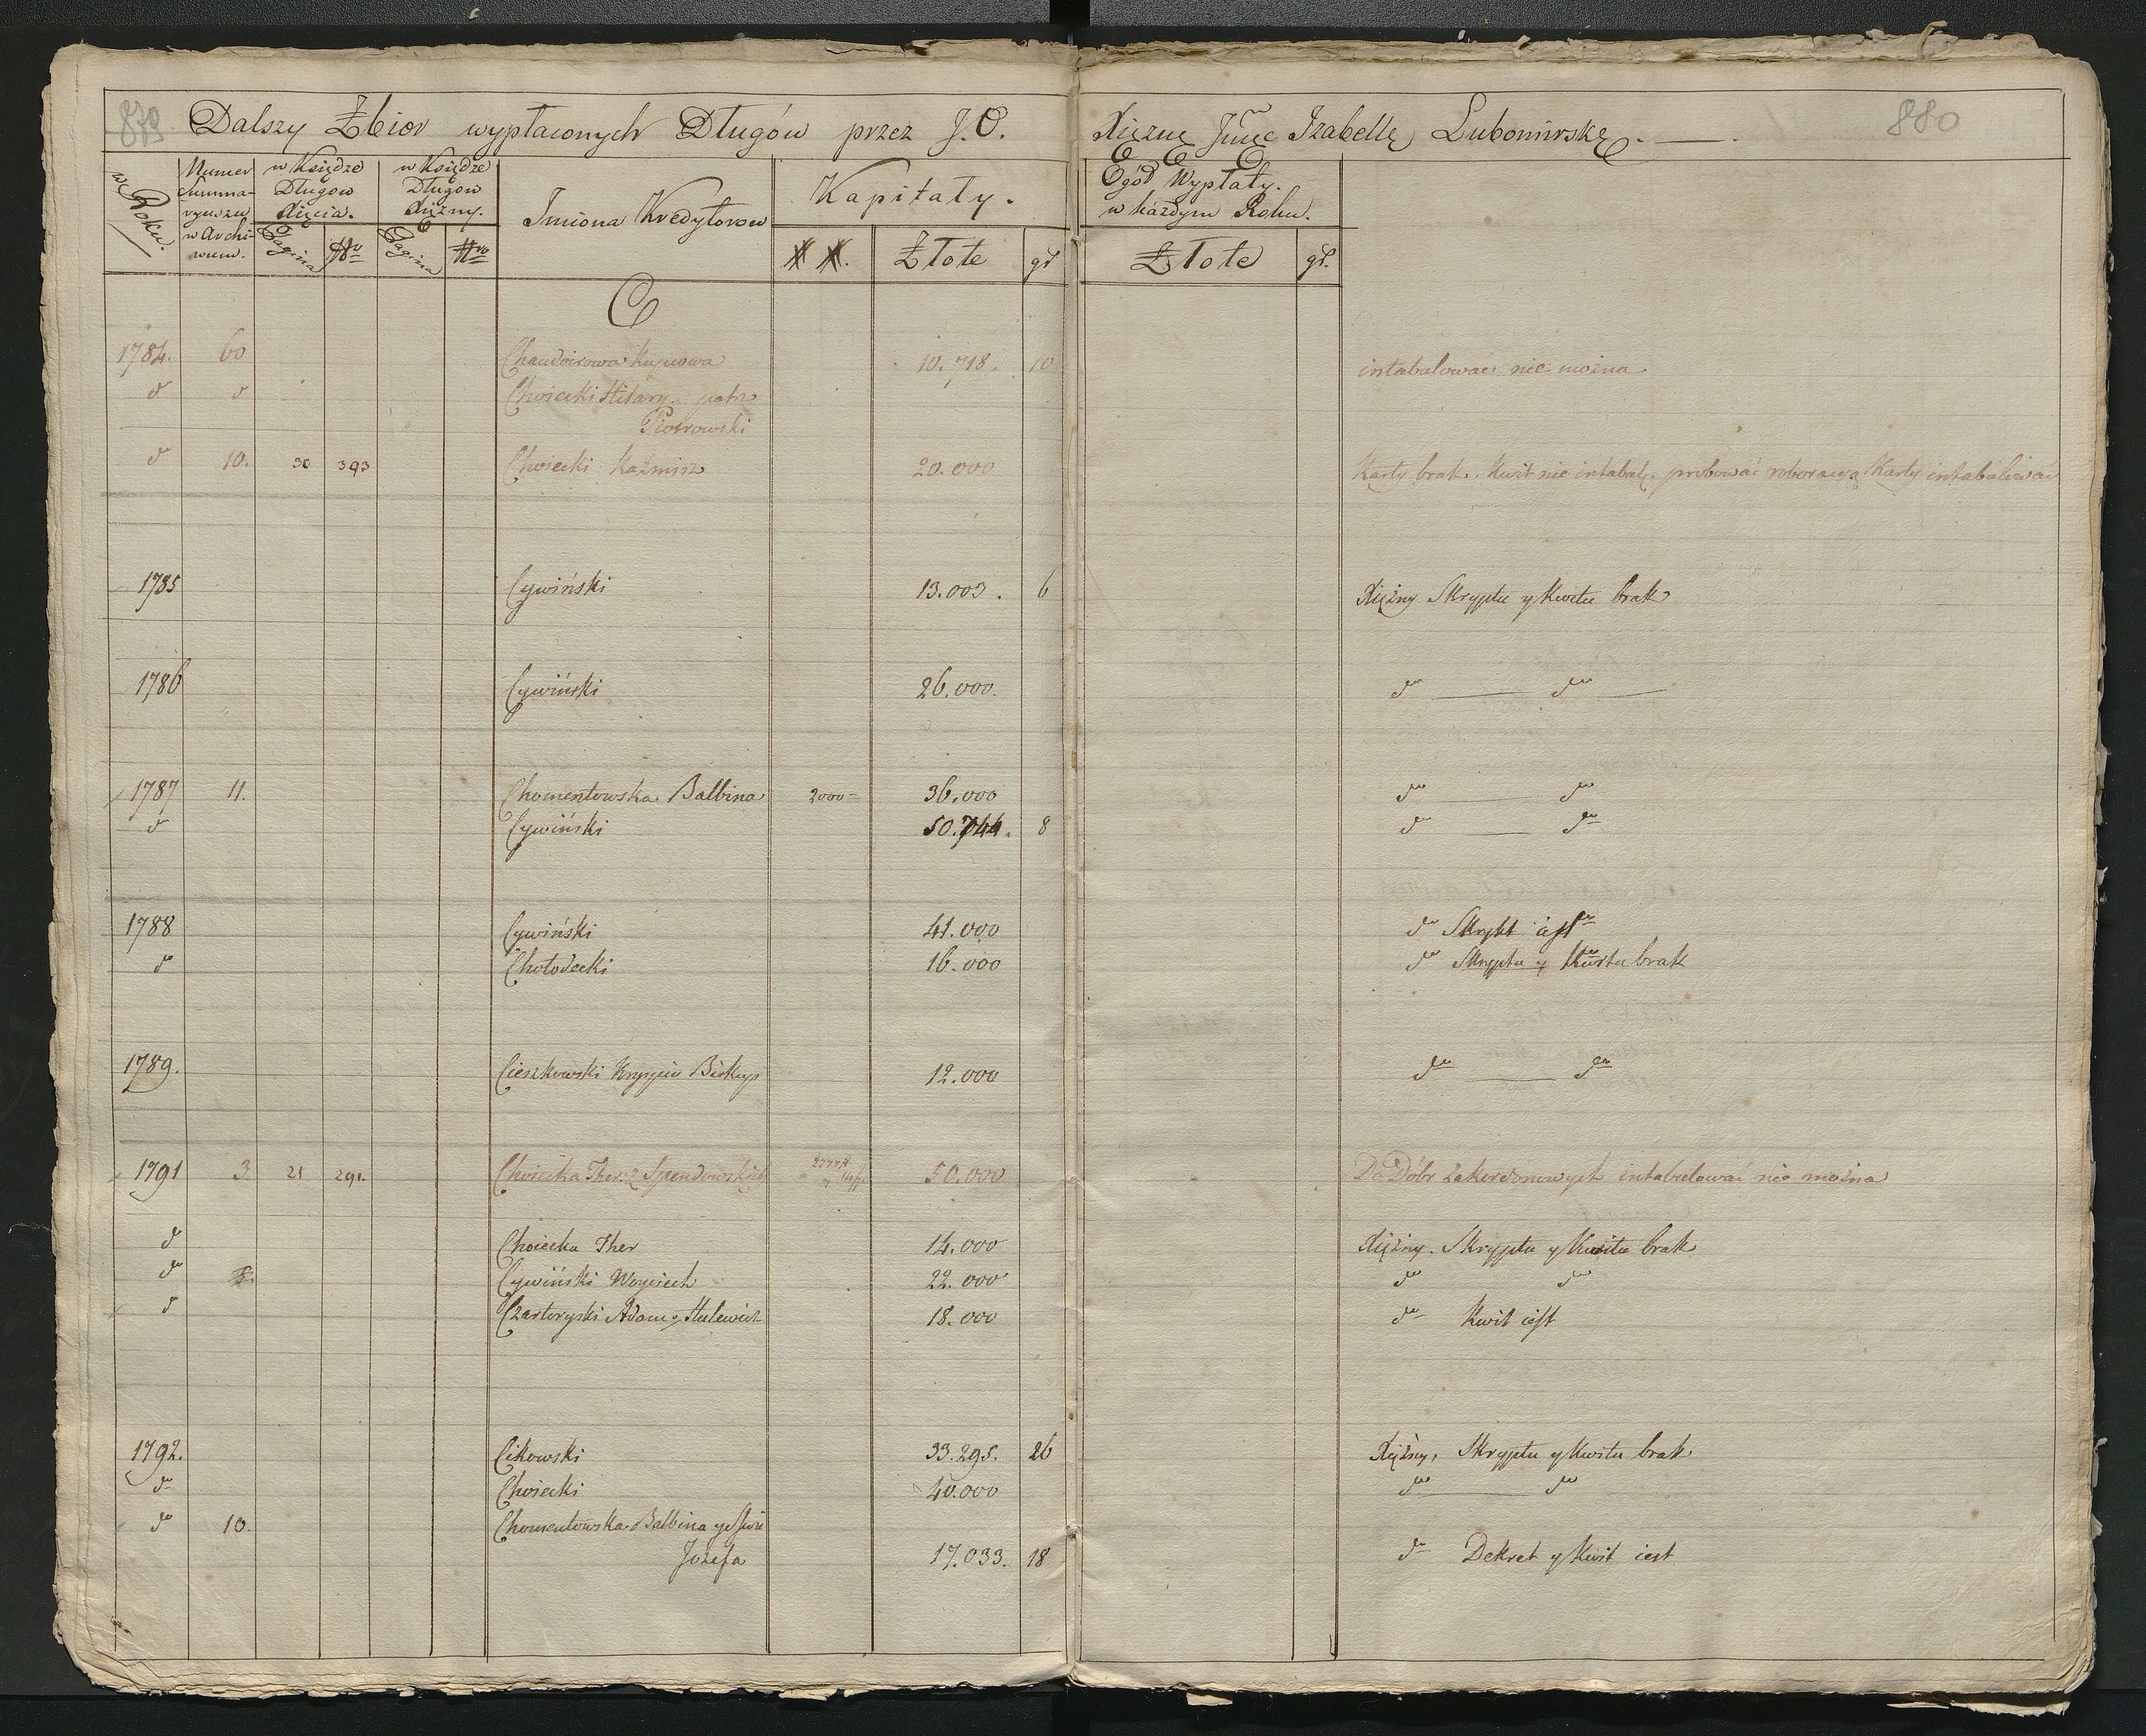 879 Dalszy Zbior wypłaconych Długów przez J. O. Xiężnę Jmć Izabellę Lubomirskę. 880
w Roku.
Numer Summaryuszu w Archiwum.
w Księdze Długow Xięcia.
w Księdze Długow Xiężny.
Imiona Kredytorow
Kapitały.
Ogół Wypłaty. w każdym Roku.
Pagina Nro Pagina Nro
## Złote gr Złote gr.
C
1784. 60 Chaudoirowa Kupcowa 10.718. 10 intabulować nie można
do do Choiecki Hilary. patrz
Piotrowski
do 10. 30 393 Choiecki Kaźmirz 20.000 Karty brak. Kwit nie intabul. probować roboracyą Karty intabulować
1785 Cywiński 13.003. 6 Xiężny Skryptu y Kwitu brak
1786 Cywiński 26.000. do do
1787 11. Chomentowska Balbina 2000 36.000 do do
do Cywiński 50.744. 8 do do
1788 Cywiński 41.000 do Skrypt iest
do Chołodecki 16.000 do Skryptu y Kwitu brak
1789. Cieszkowski Biskup 12.000 do do
1791 3. 21 291. Choiecka Ther: z 50.000 Do Dóbr zakordonowych intabulować nie można
do Choiecka Ther 14.000 Xiężny. Skryptu y Kwitu brak
do Cywiński Woyciech 22.000 do do
do Czartoryski Adam y Hulewicz 18.000 do Kwit iest
1792. Cikowski 33.295. 26 Xiężny, Skryptu y Kwitu brak
do Choiecki 40.000 do do
do 10. Chomentowska Balbina
Jozefa 17.033. 18 do Dekret y Kwit iest